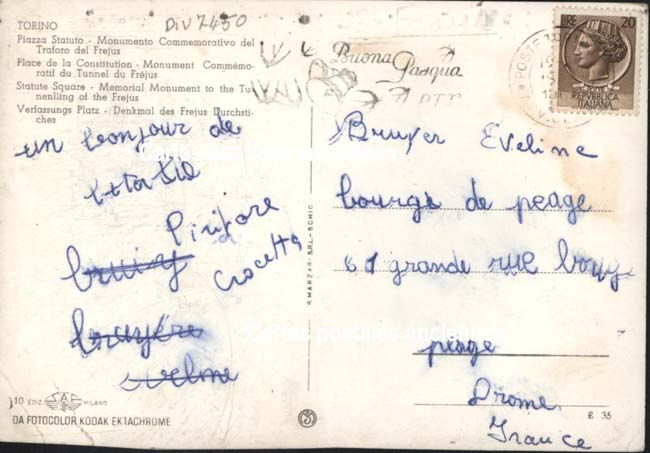 DIV 2450
TORINO
Piazza Statuto - Monumento Commemorativo del
Traforo del Frejus
Place de la Constitution - Monument Commémo-
ratif du Tunnel du Fréjus
Statute Square - Memorial Monument to the Tu-
nenlling of the Frejus
Verfassungs Platz - Denkmal des Frejus Durchsti-
ches
un bonjour de
l'itatie
Crocetta
bruiy
bruyére
evelme
10 EDIZ. SAF MILANO
DA FOTOCOLOR KODAK EKTACHROME
R. MARZARI S.R.L. - SCHIO
Buona
Pasqua
POSTE
LIRE 20
REPVBBLICA
ITALIANA
Bruyer Eveline
bourge de peage
61 grande rue bourg
piage
Drome
France
£ 35
cartes postales anciennes